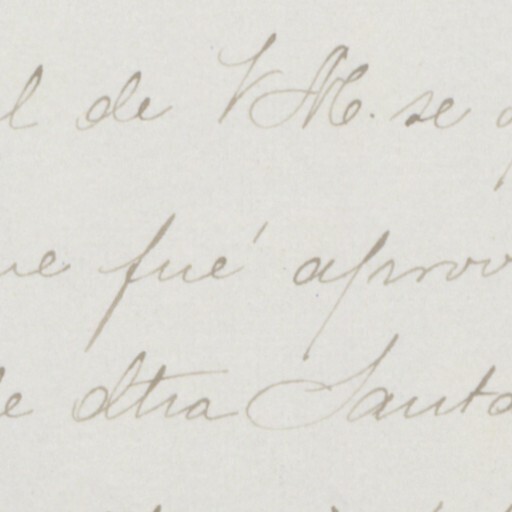 l de VM. se
ue fué aprov
de dtra Santa